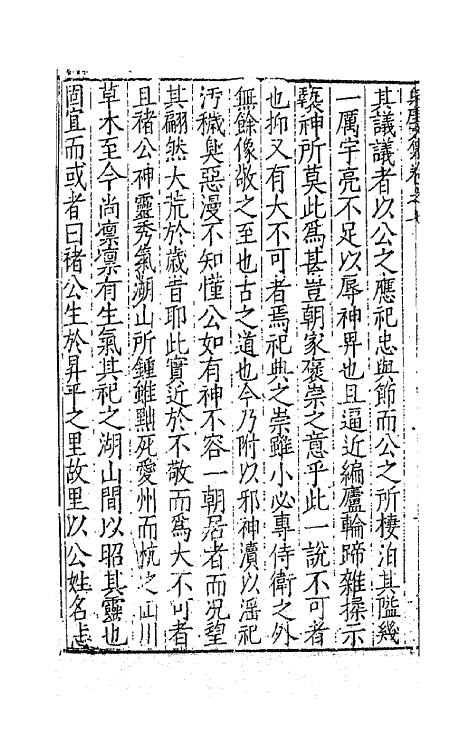 其議議者以公之應祀忠與節而公之所棲泊其隘幾
一厲宇亮不足以辱神畀也且逼近編廬輪蹄雜撡示
褻神所莫此為甚豈朝家褒崇之意乎此一說不可者
也抑又有大不可者焉祀典之崇雖小必專侍衛之外
無餘像敬之至也古之道也今乃附以邪神瀆以滛祀
汚穢臭惡漫不知懂公如有神不容一朝居者而况望
其翩然大荒於歳昔耶此實近於不敬而為大不可者
且禇公神靈秀氣湖山所鍾雖黜死愛州而杭之山川
草木至今尚凛凛有生氣其祀之湖山間以昭其靈也
固宜而或者曰禇公生於昇平之里故里以公姓名志